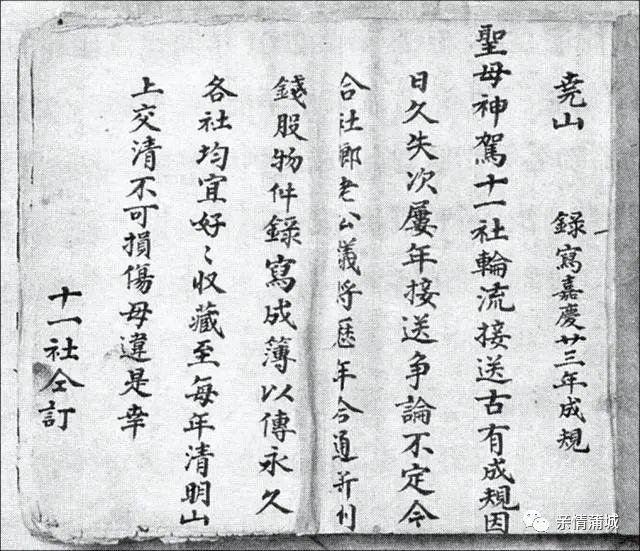 堯山　錄寫嘉慶廿三年成規
聖母神駕十一社輪流接送古有成規因
日久失次屢年接送争論不定今
合社鄉老公議将歷年合通并列
錢股物件錄寫成簿以傳永久
各社均宜好〻收藏至每年清明山
上交清不可損傷毋違是幸
十一社仝訂
亲情蒲城